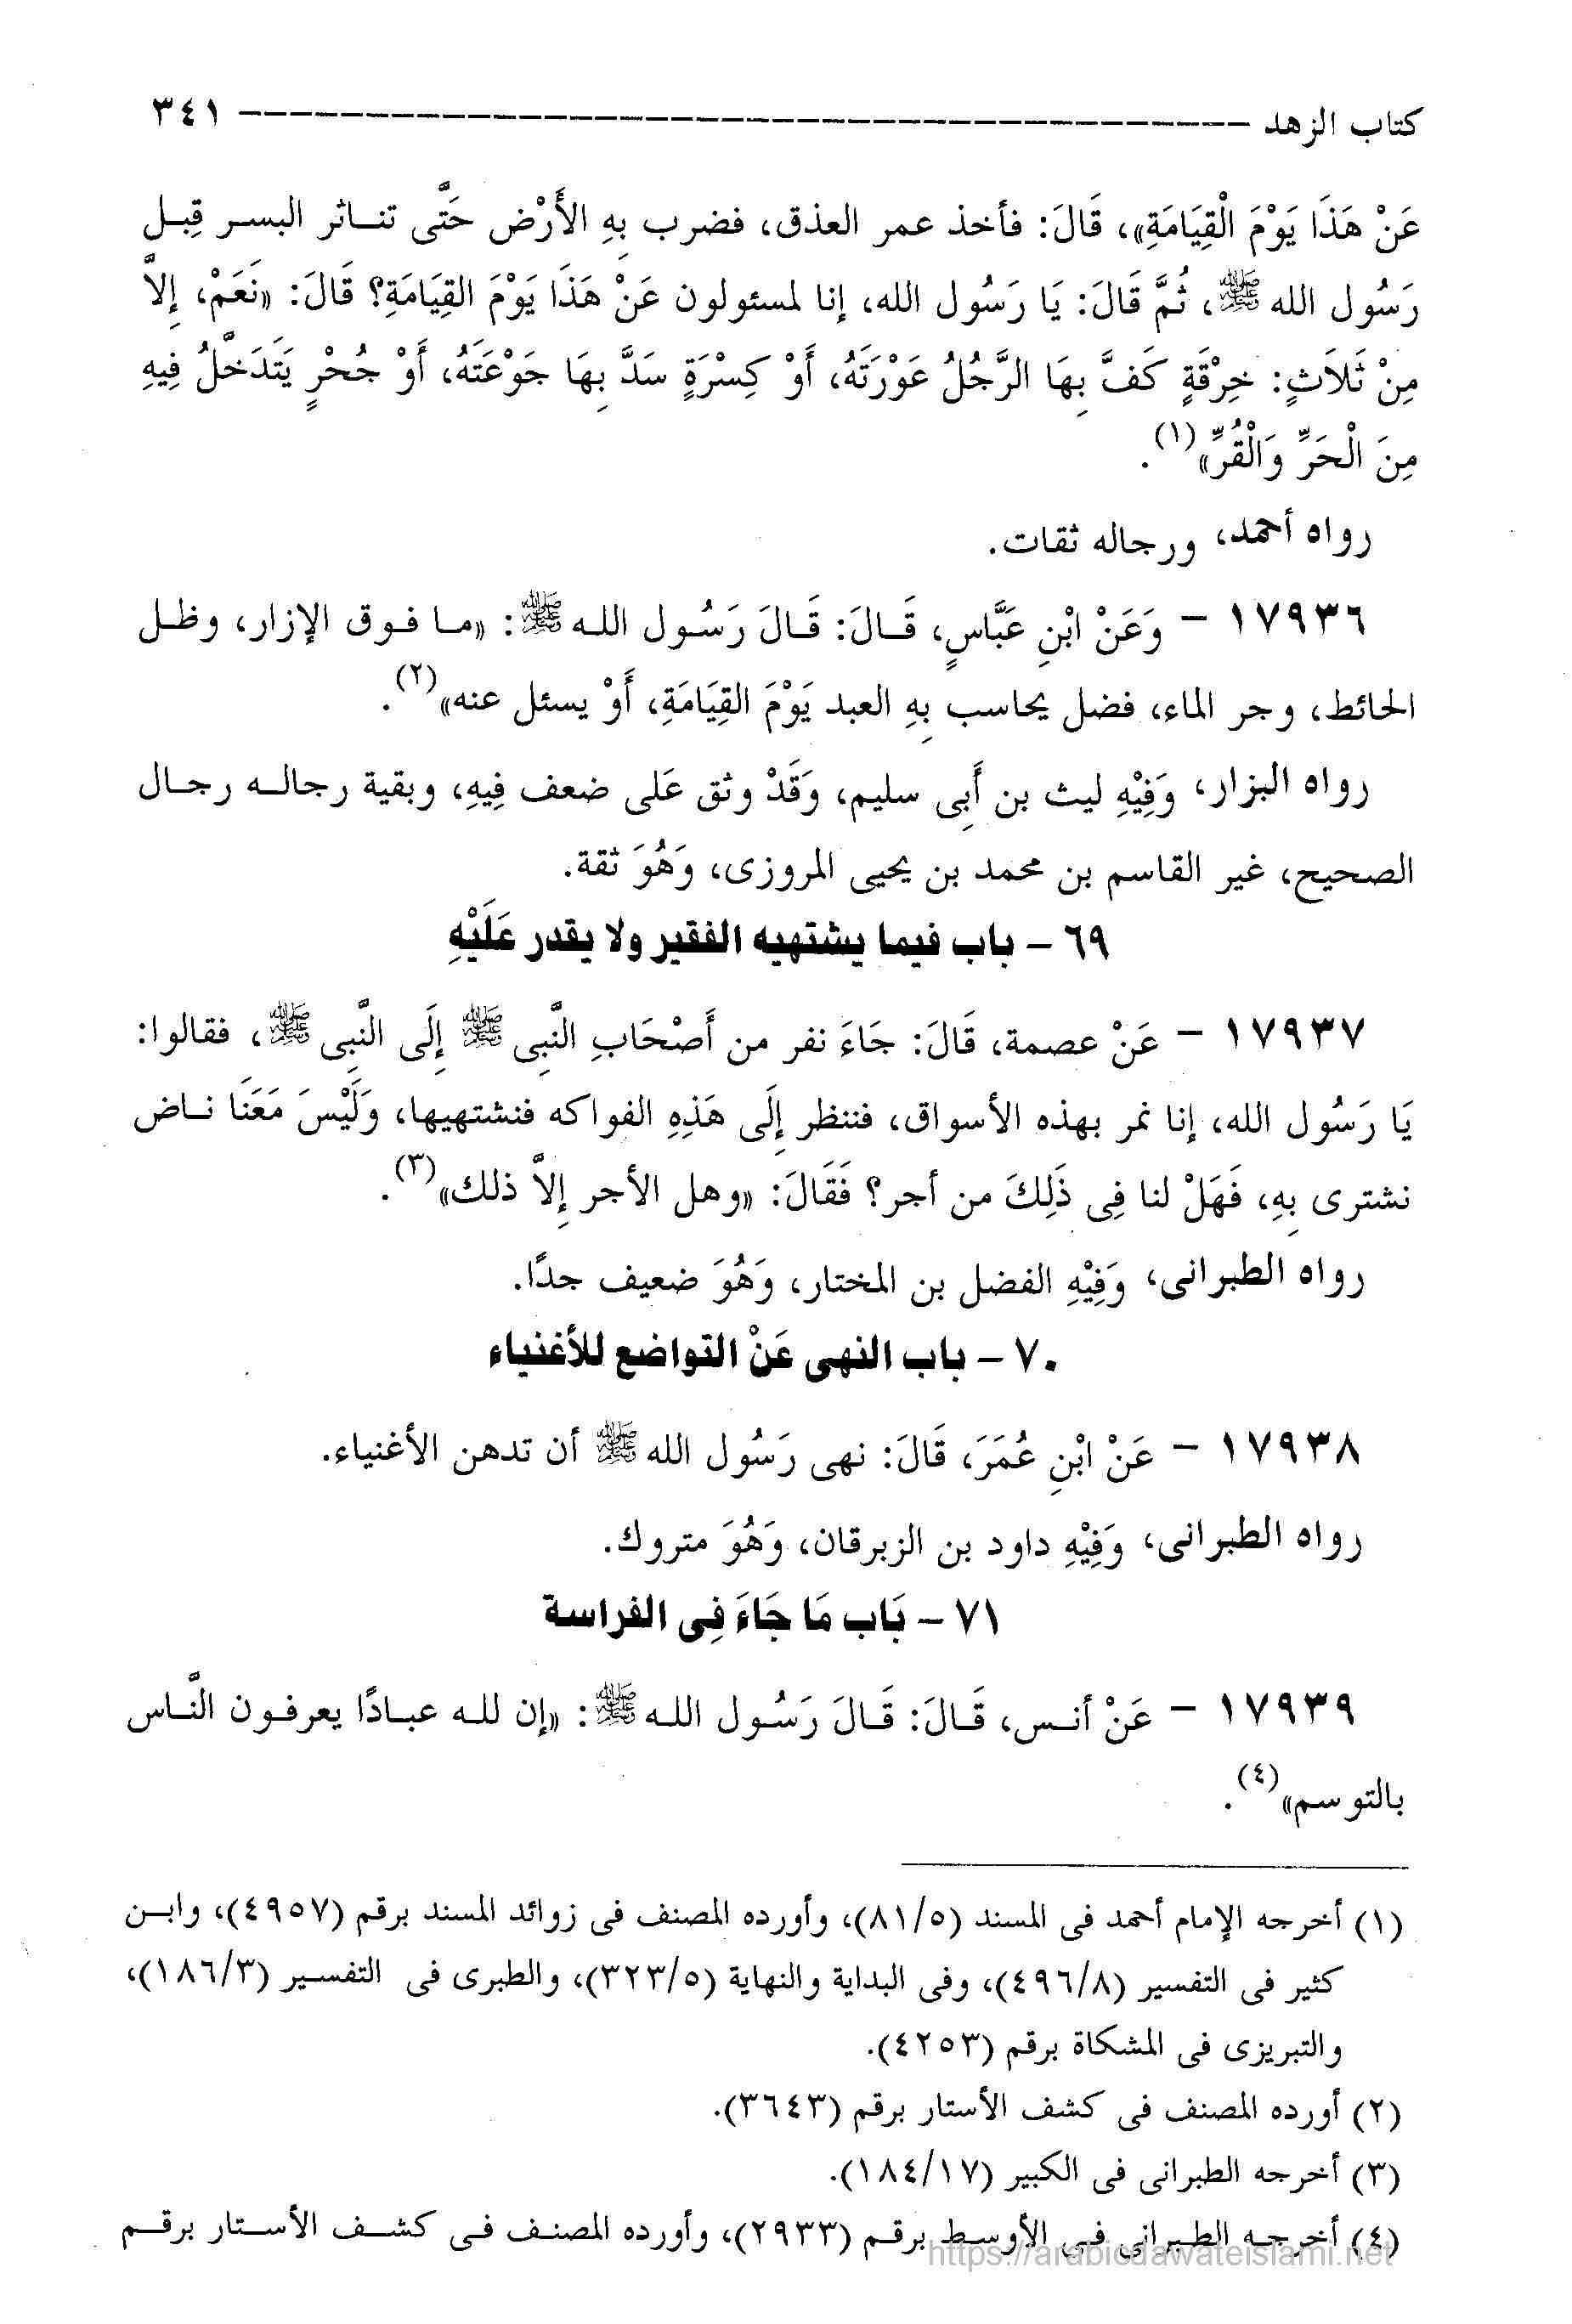 كتاب الزهد ---------------------------------------- ٣٤١
عَنْ هَذَا يَوْمَ الْقِيَامَةِ»، قَالَ: فأخذ عمر العذق، فضرب بِهِ الأَرْض حَتَّى تناثر البسر قِبل
رَسُول الله ﷺ، ثُمَّ قَالَ: يَا رَسُول الله، إنا لمسئولون عَنْ هَذَا يَوْمَ القِيَامَةِ؟ قَالَ: «نَعَمْ، إِلاَّ
مِنْ ثَلاَثٍ: خِرْقَةٍ كَفَّ بِهَا الرَّجُلُ عَوْرَتَهُ، أَوْ كِسْرَةٍ سَدَّ بِهَا جَوْعَتَهُ، أَوْ جُحْرٍ يَتَدَخَّلُ فِيهِ
مِنَ الْحَرِّ وَالْقُرِّ»(١).
رواه أحمد، ورجاله ثقات.
١٧٩٣٦ - وَعَنْ ابْنِ عَبَّاسٍ، قَالَ: قَالَ رَسُول الله ﷺ: «ما فوق الإزار، وظل
الحائط، وجر الماء، فضل يحاسب بِهِ العبد يَوْمَ القِيَامَةِ، أَوْ يسئل عنه»(٢).
رواه البزار، وَفِيْهِ ليث بن أَبِى سليم، وَقَدْ وثق عَلى ضعف فِيهِ، وبقية رجاله رجال
الصحيح، غير القاسم بن محمد بن يحيى المروزى، وَهُوَ ثقة.
٦٩ - باب فيما يشتهيه الفقير ولا يقدر عَلَيْهِ
١٧٩٣٧ - عَنْ عصمة، قَالَ: جَاءَ نفر من أَصْحَابِ النَّبِى ﷺ إِلَى النَّبِى ﷺ، فقالوا:
يَا رَسُول الله، إنا نمر بهذه الأسواق، فننظر إِلَى هَذِهِ الفواكه فنشتهيها، وَلَيْسَ مَعَنَا ناض
نشترى بِهِ، فَهَلْ لنا فِى ذَلِكَ من أجر؟ فَقَالَ: «وهل الأجر إِلاَّ ذلك»(٣).
رواه الطبرانى، وَفِيْهِ الفضل بن المختار، وَهُوَ ضعيف جدًا.
٧٠ - باب النهى عَنْ التواضع للأغنياء
١٧٩٣٨ - عَنْ ابْنِ عُمَرَ، قَالَ: نهى رَسُول الله ﷺ أن تدهن الأغنياء.
رواه الطبرانى، وَفِيْهِ داود بن الزبرقان، وَهُوَ متروك.
٧١ - بَاب مَا جَاءَ فِى الفراسة
١٧٩٣٩ - عَنْ أنس، قَالَ: قَالَ رَسُول الله ﷺ: «إن لله عبادًا يعرفون النَّاس
بالتوسم»(٤).
(١) أخرجه الإمام أحمد فى المسند (٨١/٥)، وأورده المصنف فى زوائد المسند برقم (٤٩٥٧)، وابن
كثير فى التفسير (٤٩٦/٨)، وفى البداية والنهاية (٣٢٣/٥)، والطبرى فى التفسير (١٨٦/٣)،
والتبريزى فى المشكاة برقم (٤٢٥٣).
(٢) أورده المصنف فى كشف الأستار برقم (٣٦٤٣).
(٣) أخرجه الطبرانى فى الكبير (١٨٤/١٧).
(٤) أخرجه الطبرانى فى الأوسط برقم (٢٩٣٣)، وأورده المصنف فى كشف الأستار برقم
https://arabicdawateislami.net